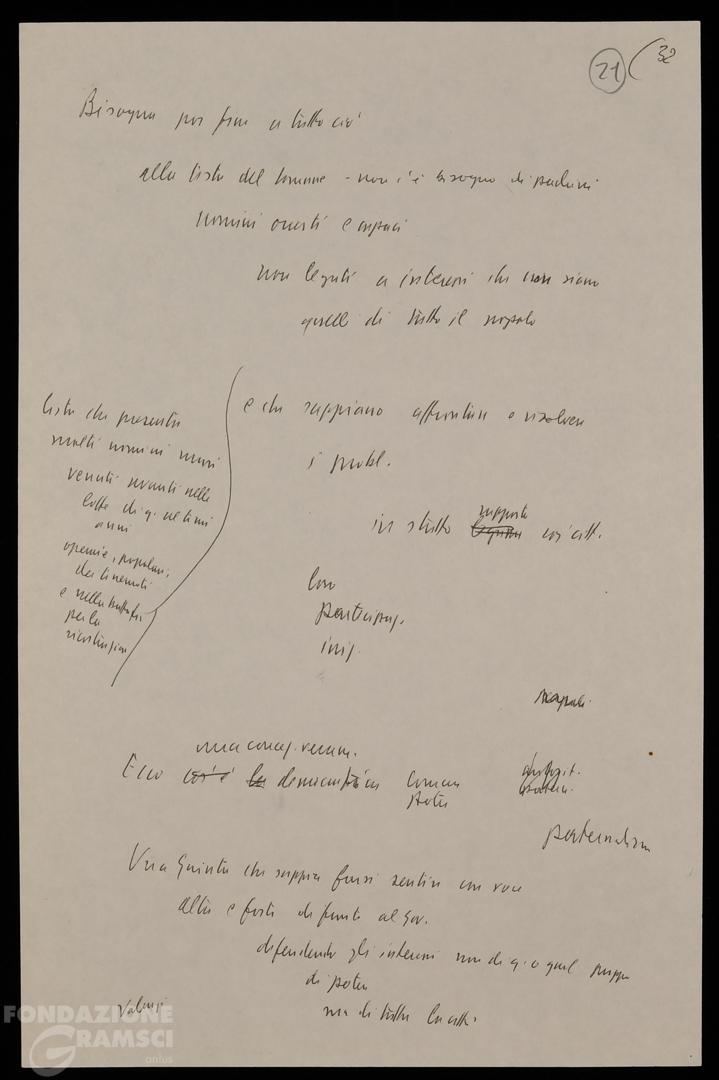 21 (32
Bisogna por fine a tutto ciò
alla lista del comune - non c'è bisogno di padrini
uomini onesti e capaci
non legati a interessi che non siano
quelli di tutto il popolo
e che sappiano affrontare e risolvere
i probl.
in stretto rapporto legame coi citt.
loro
partecipaz.
iniz.
lista che presenta
molti uomini nuovi
venuti avanti nelle
lotte di q. ultimi
anni
operaie, popolari,
dei
e nella
per la
Napoli
una concez. veram.
Ecco cos'è la democratica
potere
paternalism
Una Giunta che sappia farsi sentire con voce
alta e forte di fronte al Gov.
difendendo gli interessi non di q. o quel gruppo
di potere
ma di tutta la città.
Valenzi
FONDAZIONE
GRAMSCI
onlus